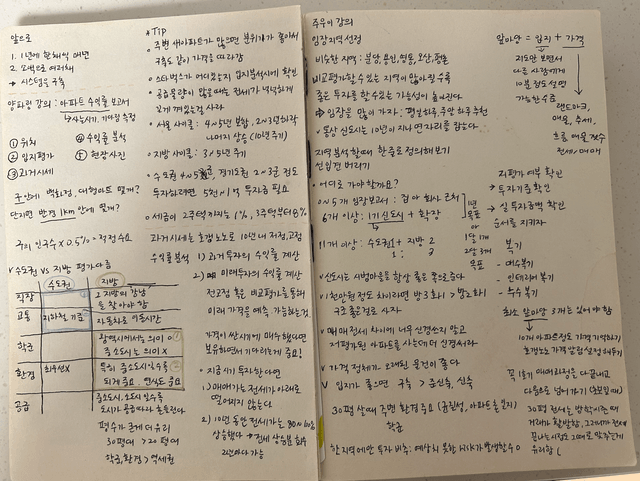 앞으로
1. 1년에 한채씩 매년
2. 소액으로 여러채
→ 시스템을 구축
양파링 강의 : 아파트 수익률 보고서
→ 사는시기, 기억할 측정
① 위치 ④ 수익률 분석
② 입지평가 ⑤ 현장사진
③ 과거시세
구안에 백화점, 대형마트 몇개?
단지반경 1km 안에 몇개?
구의 인구수 X 0.5% = 적정수요
v 수도권 vs 지방 평가다름
수도권 지방
직장 2 지방의 강남
을 찾아야 함
교통 지하철 기준 자동차로 이동시간
학군 광역시에서는 의미 O
중소도시는 의미 X
환경 최우선X 특히 중소도시일수록
되게 중요. 연식도 중요
공급 중소도시, 소도시일수록
도시가 공급따라 흔들린다
평수가 문제 더 유리
30평대 > 20평대
학군, 환경 > 역세권
* TIP
• 주변 새아파트가 많으면 분위기가 좋아서
구축도 같이 가격을 따라감
• 스타벅스가 어디있는지 입지분석시에 확인
• 공급물량이 많을때는 전세가 넉넉하게
길게 껴있는걸 사라
• 서울 사이클 : 4~5년 보합, 2~3년 하락
나머지 상승 (10년 주기)
• 지방 사이클 : 3~5년 주기
• 수도권 4~5억 경기도권 2~3군 정도
투자하려면 5천~1억 투자금 필요
• 세금이 2주택까지는 1%, 3주택부터 8%
과거시세는 호갱노노로 10년 내 저점, 고점
수익률 분석 1) 과거 투자의 수익률 계산
2) 미래 투자의 수익률 계산
전고점 혹은 비교평가를 통해
미래 가격을 예측 가능하는것.
가격이 싼시기에 매수했다면
보유하면서 기다리는게 중요!
• 지금 시기 투자한다면
1) 매매가는 전세가 아래로
떨어지지 않는다
2) 10년 동안 전세가는 80~100%
상승했다 → 전세 상승분 회수
2년마다 가능
주우이 강의
임장지역선정
비슷한 지역 : 분당, 용인, 영통, 오산, 평촌
비교평가할 수 있는 지역이 많아질수록
좋은 투자를 할수있는 가능성이 높아진다
→ 임장을 많이 가자! 평일하루, 주말 하루 추천
• 동상 신도시는 10년이 지나면 자리를 잡는다.
지역 분석할 때 한줄로 정의해보기
선입견 버리기
• 어디로 가야할까요?
0~5개 임장보고서 : 집 or 회사 근처
6개 이상 : 1기 신도시 + 확장
11개 이상 : 수도권1 + 지방 2
1년 목표
1달 1개 or 2달 3개 목표
v 신도시는 시범마을을 항상 좋은 곳으로 준다
v 1천만원 정도 차이라면 방 3 화 1 > 방 2 화 1
구조 좋은걸로 사자
v 매매 전세 차이에 너무 신경쓰지 말고
저평가된 아파트를 사는데 더 신경써라
v 가격 정체가 오래된 물건이 좋다
v 입지가 좋으면 구축 > 준신축, 신축
30평 살때 주변 환경 중요 (균질성, 아파트는 단지)
학군
한지역에만 투자 비추 : 예상치 못한 risk가 발생할수 O
앞마당 = 입지 + 가격
지도만 보면서
다른 사람에게
10분정도 설명
가능한 수준
랜드마크,
매물, 추세,
흐름 매물 갯수
전세/매매
저평가 여부 확인
→ 투자기준 확인
→ 실 투자금액 확인
순서를 지키자
복기
- 매수복기
- 인테리어 복기
- 추수 복기
최소 앞마당 3개는 있어야 함
10개 아파트정도 가격 기억하기
호갱노노 가격 알림 설정 해두기
꼭 1호기 매매과정을 다 끝내고
다음으로 넘어가기
30평 전세는 방학이전때
거래가 활발함,
끝나는시점도 그때로 맞추는게
유리함 (